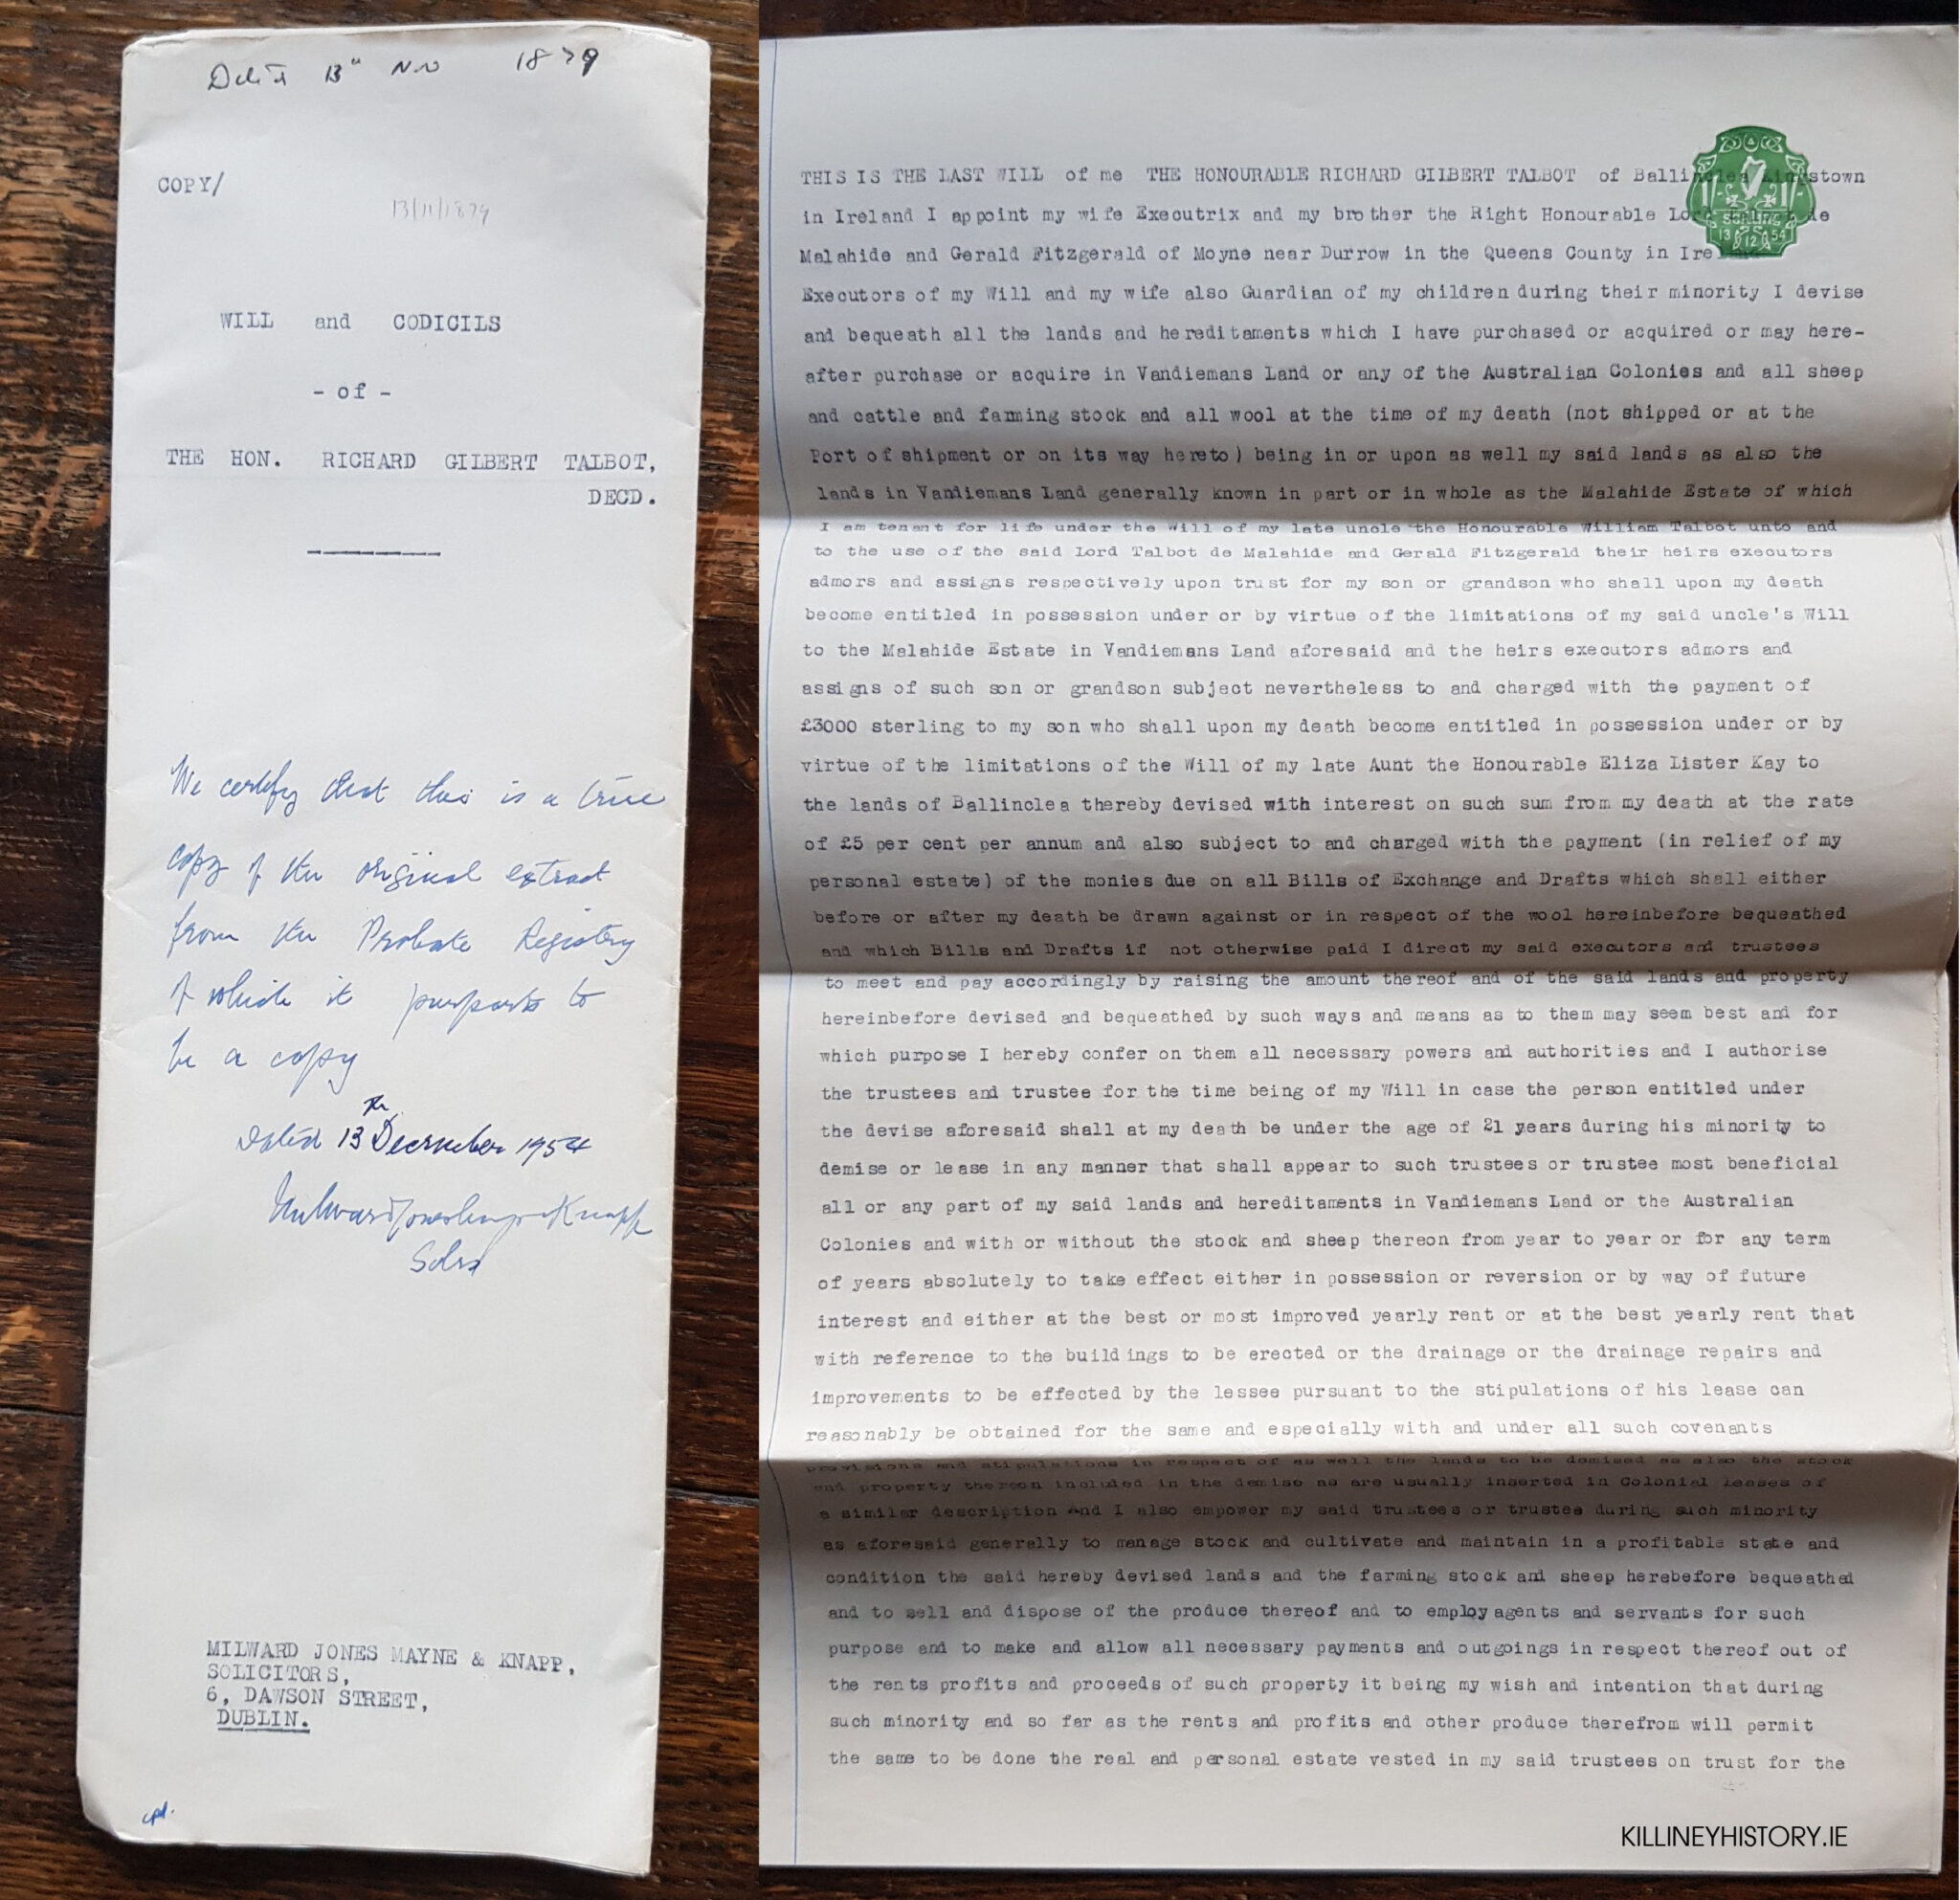 Dated 13th Nov 1879
COPY/
13/11/1879
WILL and CODICILS
- of -
THE HON. RICHARD GILBERT TALBOT,
DECD.
We certify that this is a true
copy of the original extract
from the Probate Registry
of which it purports to
be a copy
Dated 13th December 1954
Milward Jones Mayne & Knapp
Solrs
MILWARD JONES MAYNE & KNAPP,
SOLICITORS,
6, DAWSON STREET,
DUBLIN.
THIS IS THE LAST WILL of me THE HONOURABLE RICHARD GILBERT TALBOT of Ballinclea Kingstown
in Ireland I appoint my wife Executrix and my brother the Right Honourable Lord Talbot de
Malahide and Gerald Fitzgerald of Moyne near Durrow in the Queens County in Ireland
Executors of my Will and my wife also Guardian of my children during their minority I devise
and bequeath all the lands and hereditaments which I have purchased or acquired or may here-
after purchase or acquire in Vandiemans Land or any of the Australian Colonies and all sheep
and cattle and farming stock and all wool at the time of my death (not shipped or at the
Port of shipment or on its way hereto) being in or upon as well my said lands as also the
lands in Vandiemans Land generally known in part or in whole as the Malahide Estate of which
I am tenant for life under the Will of my late uncle the Honourable William Talbot unto and
to the use of the said Lord Talbot de Malahide and Gerald Fitzgerald their heirs executors
admors and assigns respectively upon trust for my son or grandson who shall upon my death
become entitled in possession under or by virtue of the limitations of my said uncle's Will
to the Malahide Estate in Vandiemans Land aforesaid and the heirs executors admors and
assigns of such son or grandson subject nevertheless to and charged with the payment of
£3000 sterling to my son who shall upon my death become entitled in possession under or by
virtue of the limitations of the Will of my late Aunt the Honourable Eliza Lister Kay to
the lands of Ballinclea thereby devised with interest on such sum from my death at the rate
of £5 per cent per annum and also subject to and charged with the payment (in relief of my
personal estate) of the monies due on all Bills of Exchange and Drafts which shall either
before or after my death be drawn against or in respect of the wool hereinbefore bequeathed
and which Bills and Drafts if not otherwise paid I direct my said executors and trustees
to meet and pay accordingly by raising the amount thereof and of the said lands and property
hereinbefore devised and bequeathed by such ways and means as to them may seem best and for
which purpose I hereby confer on them all necessary powers and authorities and I authorise
the trustees and trustee for the time being of my Will in case the person entitled under
the devise aforesaid shall at my death be under the age of 21 years during his minority to
demise or lease in any manner that shall appear to such trustees or trustee most beneficial
all or any part of my said lands and hereditaments in Vandiemans Land or the Australian
Colonies and with or without the stock and sheep thereon from year to year or for any term
of years absolutely to take effect either in possession or reversion or by way of future
interest and either at the best or most improved yearly rent or at the best yearly rent that
with reference to the buildings to be erected or the drainage or the drainage repairs and
improvements to be effected by the lessee pursuant to the stipulations of his lease can
reasonably be obtained for the same and especially with and under all such covenants
provisions and stipulations in respect of as well the lands to be demised as also the stock
and property thereon included in the demise as are usually inserted in Colonial leases of
a similar description And I also empower my said trustees or trustee during such minority
as aforesaid generally to manage stock and cultivate and maintain in a profitable state and
condition the said hereby devised lands and the farming stock and sheep herebefore bequeathed
and to sell and dispose of the produce thereof and to employ agents and servants for such
purpose and to make and allow all necessary payments and outgoings in respect thereof out of
the rents profits and proceeds of such property it being my wish and intention that during
such minority and so far as the rents and profits and other produce therefrom will permit
the same to be done the real and personal estate vested in my said trustees on trust for the
SCILLING
13 12 54
KILLINEYHISTORY.IE